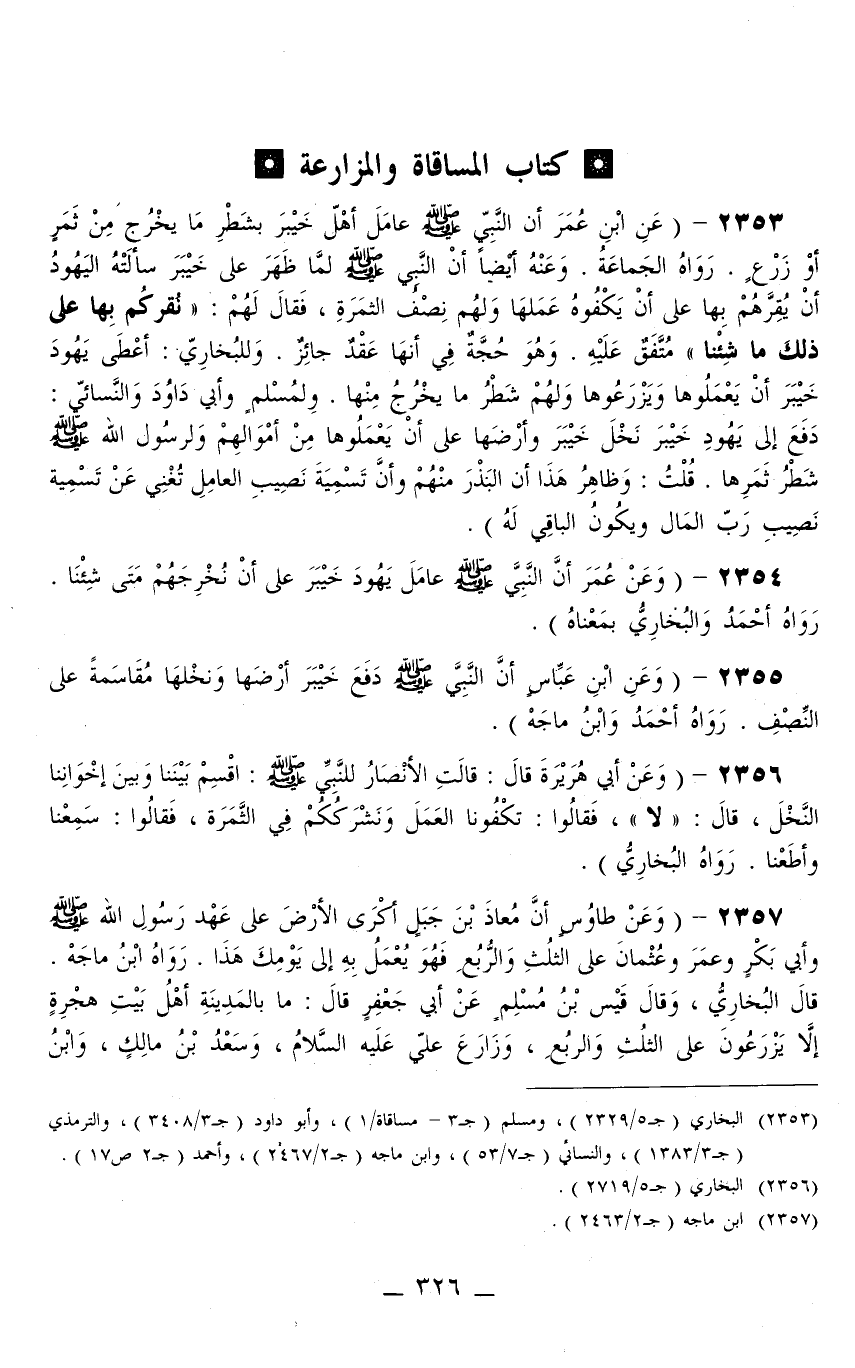 كتاب المساقاة والمزارعة
٢٣٥٣ – ( عَنِ ابْنِ عُمَرَ أن النَّبِيّ ﷺ عامَلَ أهْلَ خَيْبَرَ بشَطْرِ مَا يخْرُج مِنْ ثَمَرٍ
أوْ زَرْعٍ . رَوَاهُ الجَماعَةُ . وَعَنْهُ أيْضاً أنْ النَّبِي ﷺ لمَّا ظَهَرَ على خَيْبَرَ سألَتْهُ اليَهُودُ
أنْ يُقِرَّهُمْ بِها على أنْ يَكْفُوهُ عَمَلهَا وَلهُم نِصْفُ الثمَرَةِ ، فَقالَ لَهُمْ : « نُقركُم بِها على
ذلكَ ما شِئْنا » مُتَّفَقٌ عَلَيْهِ . وَهُوَ حُجَّةٌ فِي أنهَا عَقْدٌ جائِزٌ . وَللبُخاريّ : أعْطَى يَهُودَ
خَيْبَرَ أنْ يَعْمَلُوها وَيَزْرَعُوها وَلهُمْ شَطْرُ ما يخْرُجُ مِنْها . ولمُسْلمٍ وأبي دَاوُدَ وَالنَّسائيّ :
دَفَعَ إلى يَهُودِ خَيْبَرَ نَخْلَ خَيْبَرَ وأرْضَها على أنْ يَعْمَلُوها مِنْ أمْوَالِهِمْ وَلرسُول الله ﷺ
شَطْرُ ثَمَرِها . قُلْتُ : وَظاهِرُ هَذَا أن البَذْرَ منْهُمْ وأنَّ تَسْمِيَةَ نَصِيبِ العامِلِ تُغْنِي عَنْ تَسْمِية
نَصِيبِ رَبّ المَال ويكُونُ الباقِي لَهُ ) .
٢٣٥٤ – ( وَعَنْ عُمَرَ أنَّ النَّبِيَّ ﷺ عامَلَ يَهُودَ خَيْبَرَ على أنْ نُخْرِجَهُمْ مَتَى شِئْنَا .
رَوَاهُ أحْمَدُ وَالبُخاريُّ بمَعْناهُ ) .
٢٣٥٥ – ( وَعَنِ ابْنِ عَبَّاسٍ أنَّ النَّبِيَّ ﷺ دَفَعَ خَيْبَرَ أرْضَها وَنخْلهَا مُقَاسَمةً على
النِّصْفِ . رَوَاهُ أحْمَدُ وَابْنُ ماجَهْ ) .
٢٣٥٦ – ( وَعَنْ أبي هُرَيْرَةَ قالَ : قالَتِ الأنْصَارُ للنَّبِيِّ ﷺ : اقْسِمْ بَيْنَنا وَبينَ إخْوَانِنا
النَّخْلَ ، قالَ : « لا » ، فَقالُوا : تكْفُونا العَمَلَ وَنَشْرَكُكُمْ فِي الثَّمَرَة ، فَقالُوا : سَمِعْنا
وأطَعْنا . رَوَاهُ البُخاريُّ ) .
٢٣٥٧ – ( وَعَنْ طاوُسٍ أنَّ مُعاذَ بْنَ جَبَلٍ أكْرَى الأرْضَ على عَهْد رَسُولِ الله ﷺ
وأبي بَكْرٍ وعمَرَ وعُثْمانَ على الثلُثِ وَالرُّبُعِ فَهُوَ يُعْمَلُ بِهِ إلى يَوْمِكَ هَذَا . رَوَاهُ ابْنُ ماجَهْ .
قالَ البُخاريُّ ، وَقالَ قَيْس بْنُ مُسْلِمٍ عَنْ أبي جَعْفرٍ قالَ : ما بالمَدِينَةِ أهْلُ بَيْتِ هجْرةٍ
إلَّا يَزْرَعُونَ على الثلُثِ وَالربُعِ ، وَزَارَعَ عليّ عَلَيه السَّلامُ ، وَسَعْدُ بْنُ مالِكٍ ، وَابْنُ
(٢٣٥٣) البخاري ( جـ٢٣٢٩/٥ ) ، ومسلم ( جـ٣ – مساقاة/١ ) ، وأبو داود ( جـ٣٤٠٨/٣ ) ، والترمذي
( جـ١٣٨٣/٣ ) ، والنسائي ( جـ٥٣/٧ ) ، وابن ماجه ( جـ٢٤٦٧/٢ ) ، وأحمد ( جـ٢ ص١٧ ) .
(٢٣٥٦) البخاري ( جـ٢٧١٩/٥ ) .
(٢٣٥٧) ابن ماجه ( جـ٢٤٦٣/٢ ) .
_ ٣٢٦ _